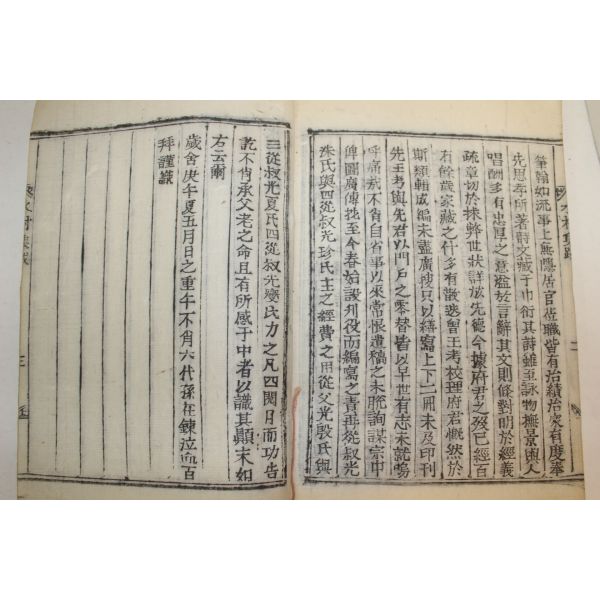 筆翰如流事上無隱居官莅職皆有治績治家有度奉
先思孝所著詩文藏于巾衍其詩雖至詠物撫景與人
唱酬多有忠厚之意溢於言辭其文則條對明於經義
疏章切於捄弊世狀詳於先德今據府君之歿已經百
有餘歲家藏之什多有散逸曾王考校理府君慨然於
斯類輯成編未盡廣搜只以繕寫上下二冊未及印刊
先王考與先君以門戶之零替皆以早世有志未就嗚
呼痛哉不肖自省事以來常恨遺稿之未脫詢謀宗中
俾圖廣傳迄至今春始設刊役而編寫之責再從叔光
洙氏與四從叔光珍氏主之經費之用從父光殷氏與
三從叔光夏氏四從叔光燮氏力之凡四閱月而功告
訖不肖承父老之命且有所感于中者以識其顚末如
右云爾
歲舍庚午夏五月日之重午不肖六代孫在鍊泣血百
拜謹識